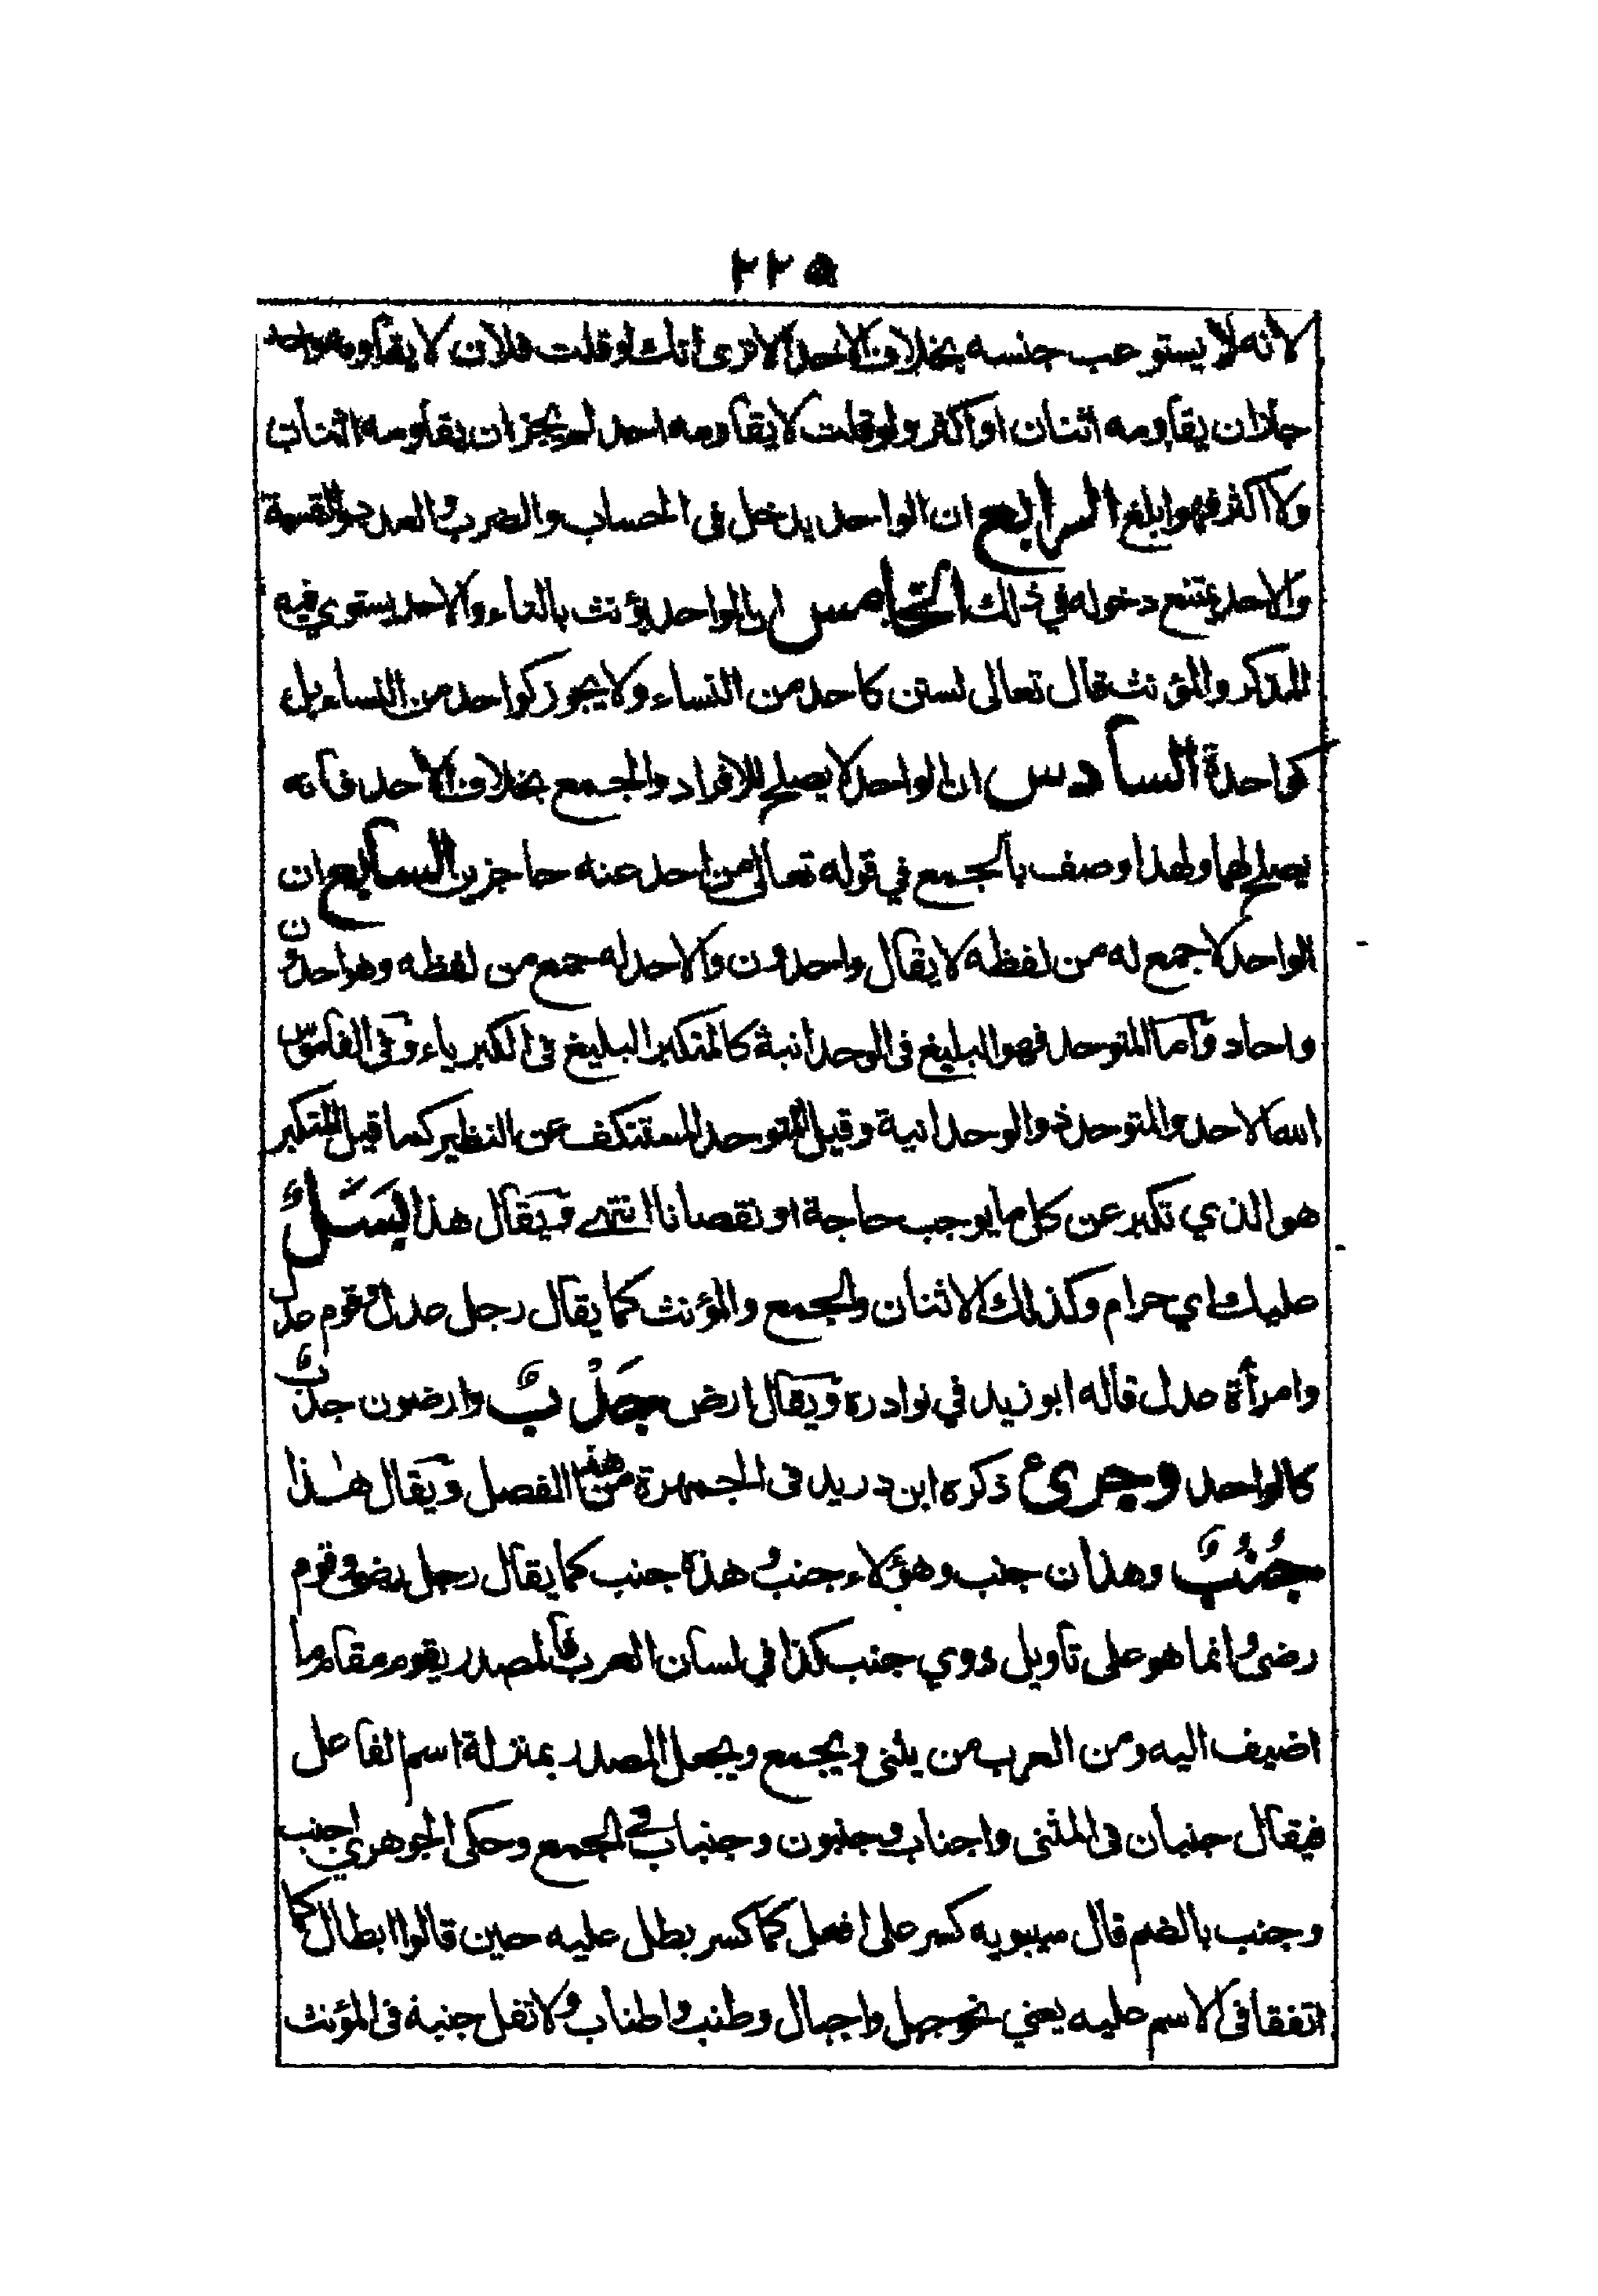 ٢٢٥
لانه لا يستوعب جنسه بخلاف الاحد الا ترى انك لو قلت فلان لا يقاومه واحد
جاز ان يقاومه اثنان او اكثر ولو قلت لا يقاومه احد لم يجز ان يقاومه اثنان
ولا اكثر فهو ابلغ الرابع ان الواحد يدخل فى الحساب والضرب والعدد والقسمة
والاحد يمتنع دخوله في ذلك الخامس ان الواحد يؤنث بالتاء والاحد يستوي فيه
المذكر والمؤنث قال تعالى لستن كاحد من النساء ولا يجوز كواحد من النساء بل
كواحدة السادس ان الواحد لا يصلح للافراد والجمع بخلاف الاحد فانه
يصلح لهما ولهذا وصف بالجمع في قوله تعالى من احد عنه حاجزين السابع ان
الواحد لا جمع له من لفظه لا يقال واحدون والاحد له جمع من لفظه وهو احدون
واحاد واما المتوحد فهو البليغ فى الوحدانية كالمتكبر البليغ فى الكبرياء وفى القاموس
الله الاحد والمتوحد ذو الوحدانية وقيل المتوحد المستنكف عن النظير كما قيل المتكبر
هو الذي تكبر عن كل ما يوجب حاجة او نقصانا انتهى ويقال هذا بَسَلٌ
عليك اي حرام وكذلك الاثنان والجمع والمؤنث كما يقال رجل عدل وقوم عدل
وامرأة عدل قاله ابو زيد في نوادره ويقال ارض جَدْبٌ وارضون جدبٌ
كالواحد وجرئ ذكره ابن دريد فى الجمهرة من هذا الفصل ويقال هذا
جُنُبٌ وهذان جنب وهؤلاء جنب وهذه جنب كما يقال رجل رضى وقوم
رضى وانما هو على تاويل ذوي جنب كذا في لسان العرب فالمصدر يقوم مقام ما
اضيف اليه ومن العرب من يثنى ويجمع ويجعل المصدر بمنزلة اسم الفاعل
فيقال جنبان فى المثنى واجناب وجنبون وجنبات في الجمع وحكى الجوهري اجنب
وجنب بالضم قال سيبويه كسر على افعال كما كسر بطل عليه حين قالوا ابطال كما
اتفقا فى الاسم عليه يعني نحو جبل واجبال وطنب واطناب ولا تقل جنبة فى المؤنث